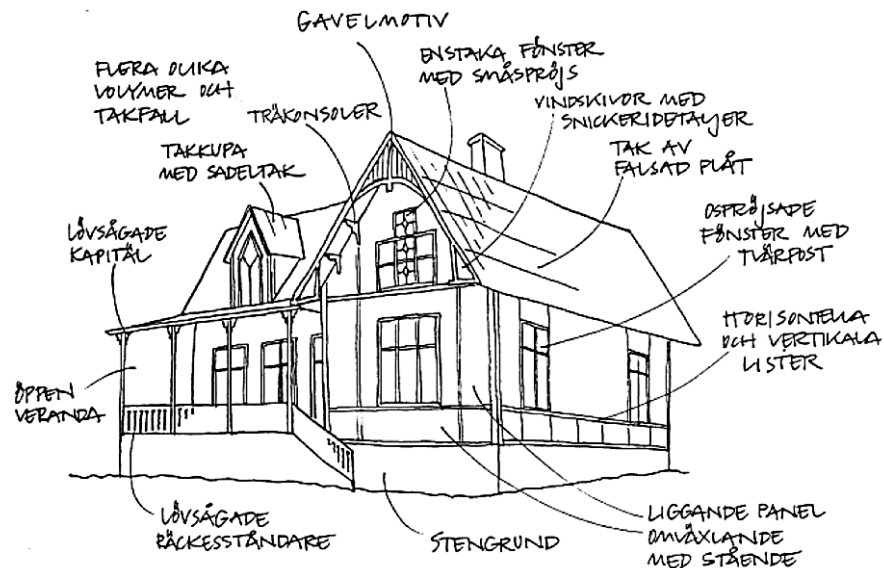 GAVELMOTIV
FLERA OLIKA
VOLYMER OCH
TAKFALL
TRÄKONSOLER
ENSTAKA FÖNSTER
MED SMÅSPRÖJS
VINDSKIVOR MED
SNICKERIDETALJER
TAK AV
FALSAD PLÅT
TAKKUPA
MED SADELTAK
OSPRÖJSADE
FÖNSTER MED
TVÄRPOST
LÖVSÅGADE
KAPITÄL
HORISONTELLA
OCH VERTIKALA
LISTER
ÖPPEN
VERANDA
LÖVSÅGADE
RÄCKESSTÅNDARE
STENGRUND
LIGGANDE PANEL
OMVÄXLANDE
MED STÅENDE